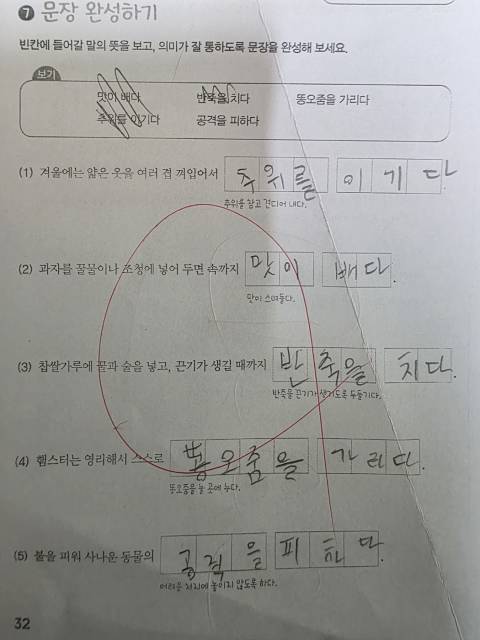 7 문장 완성하기
빈칸에 들어갈 말의 뜻을 보고, 의미가 잘 통하도록 문장을 완성해 보세요.
보기
맛이 배다 반죽을 치다 똥오줌을 가리다
추위를 이기다 공격을 피하다
(1) 겨울에는 얇은 옷을 여러 겹 껴입어서 추위를 이기다.
추위를 참고 견디어 내다.
(2) 과자를 꿀물이나 조청에 넣어 두면 속까지 맛이 배다.
맛이 스며들다.
(3) 찹쌀가루에 꿀과 술을 넣고, 끈기가 생길 때까지 반죽을 치다.
반죽을 끈기가 생기도록 두들기다.
(4) 햄스터는 영리해서 스스로 똥오줌을 가리다.
똥오줌을 눌 곳에 누다.
(5) 불을 피워 사나운 동물의 공격을 피하다.
어려운 처지에 놓이지 않도록 하다.
32